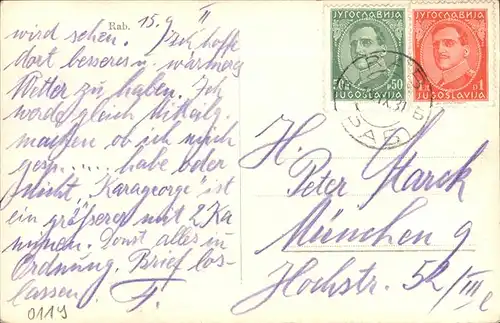 Rab.
15. 9. II
wird sehen. Ich hoffe
dort besseres u. wärmeres
Wetter zu haben. Ich
werde gleich Mitteilg.
machen ob ich mich
..... habe oder
nicht, "Karageorge" ist
ein größerer mit 2 Ka
minen. Sonst alles in
Ordnung. Brief los-
lassen. F.
0119
ЈУГОСЛАВИЈА
50 50
JUGOSLAVIJA
ЈУГОСЛАВИЈА
1 1
JUGOSLAVIJA
RAB
H.
Peter Starck
München 9
Hochstr. 52/III